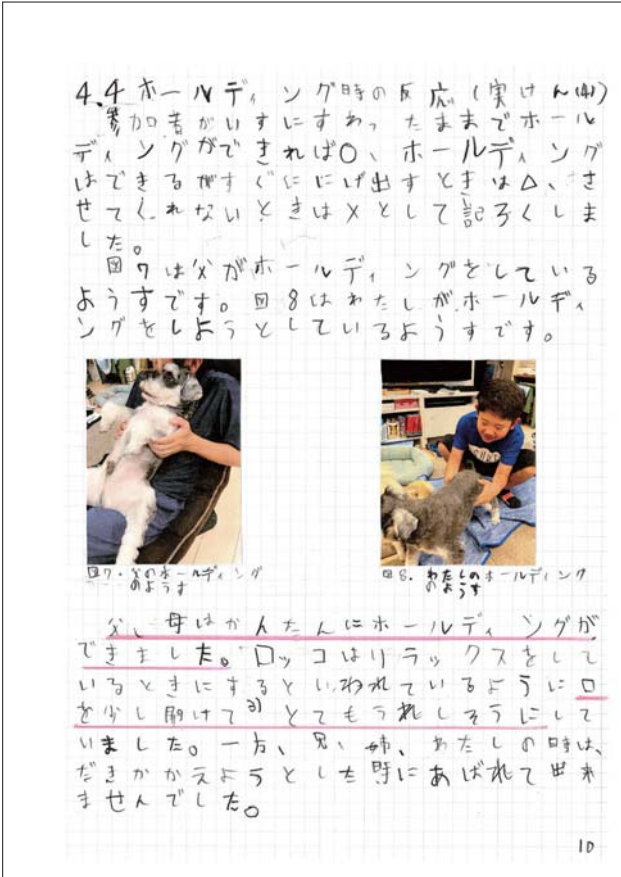 4.4 ホールディング時の反応(実けん(4))
参加者がいすにすわったままでホール
ディングができれば○、ホールディング
はできるがすぐににげ出すときは△、さ
せてくれないときは×として記ろくしま
した。
図7は父がホールディングをしている
ようすです。図8はわたしがホールディ
ングをしようとしているようすです。
図7.父のホールディング
のようす
図8.わたしのホールディング
のようす
父、母はかんたんにホールディングが
できました。ロッコはリラックスをして
いるときにするといわれているように口
を少し開けて3)とてもうれしそうにして
いました。一方、兄、姉、わたしの時は、
だきかかえようとした時にあばれて出来
ませんでした。
10